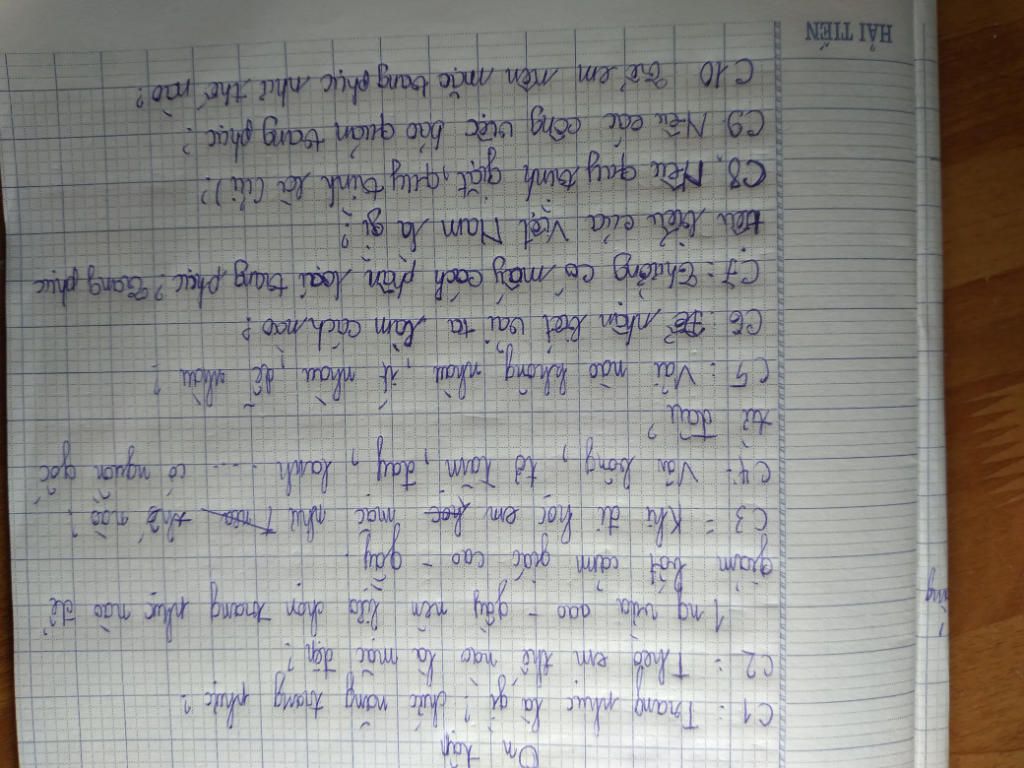 HẢI TIẾN
Ôn tập
C1 : Trang phục là gì? chức năng trang phục ?
C2 : Theo em thế nào là mặc đẹp ?
1 ng vừa cao - gầy nên lựa chọn trang phục nào để
giảm bớt cảm giác cao - gầy
C3 : Khi đi học em học mặc như thế nào thế nào ?
C4: Vải bông , tơ tằm , đay , lanh .... có nguồn gốc
từ đâu ?
C5 : Vải nào không nhàu , ít nhàu , dễ nhàu ?
C6 : Để nhận biết vải ta làm cách nào ?
C7 : Thường có mấy cách phân loại trang phục ? Trang phục
tiêu biểu của Việt Nam là gì ?
C8, Nêu quy trình giặt, quy trình là (ủi) ?
C9 Nêu các công việc bảo quản trang phục ?
C10 Trẻ em nên mặc trang phục như thế nào ?